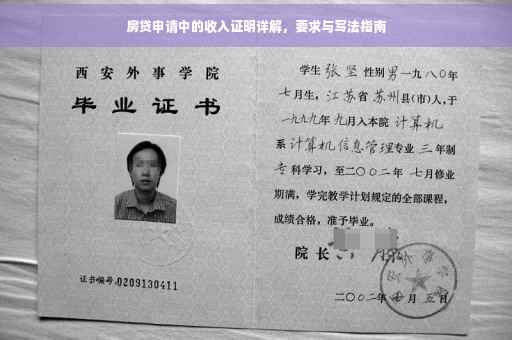 房贷申请中的收入证明详解，要求与写法指南
西安外事学院
毕业证书
证书编号:0209130411
学生 张坚 性别 男 一九八〇年
七月生, 江苏省 苏州县(市)人,于
一九九九年 九月入本院 计算机
系 计算机信息管理专业 三 年制
专 科学习，至二〇〇二年 七月修业
期满，学完教学计划规定的全部课程，
成绩合格，准予毕业。
院 长
二〇〇二年 七 月 五 日